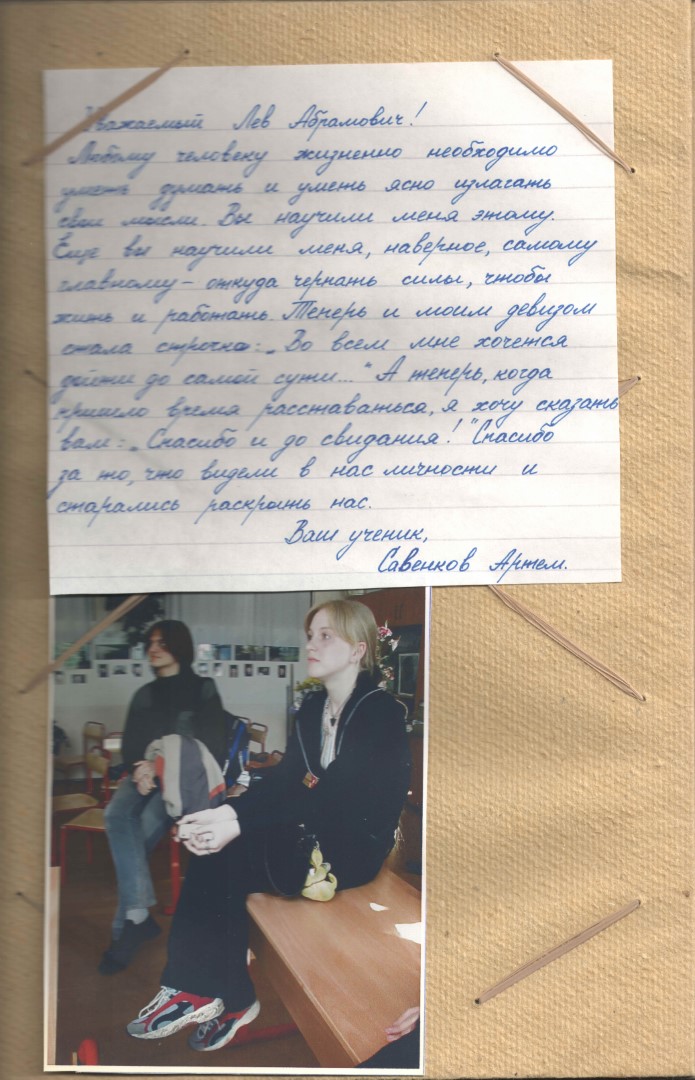 Уважаемый Лев Абрамович!
Любому человеку жизненно необходимо
уметь думать и уметь ясно излагать
свои мысли. Вы научили меня этому.
Еще вы научили меня, наверное, самому
главному – откуда черпать силы, чтобы
жить и работать. Теперь и моим девизом
стала строчка: „Во всем мне хочется
дойти до самой сути..." А теперь, когда
пришло время расставаться, я хочу сказать
вам: „Спасибо и до свидания!" Спасибо
за то, что видели в нас личности и
старались раскрыть нас.
Ваш ученик,
Савенков Артем.